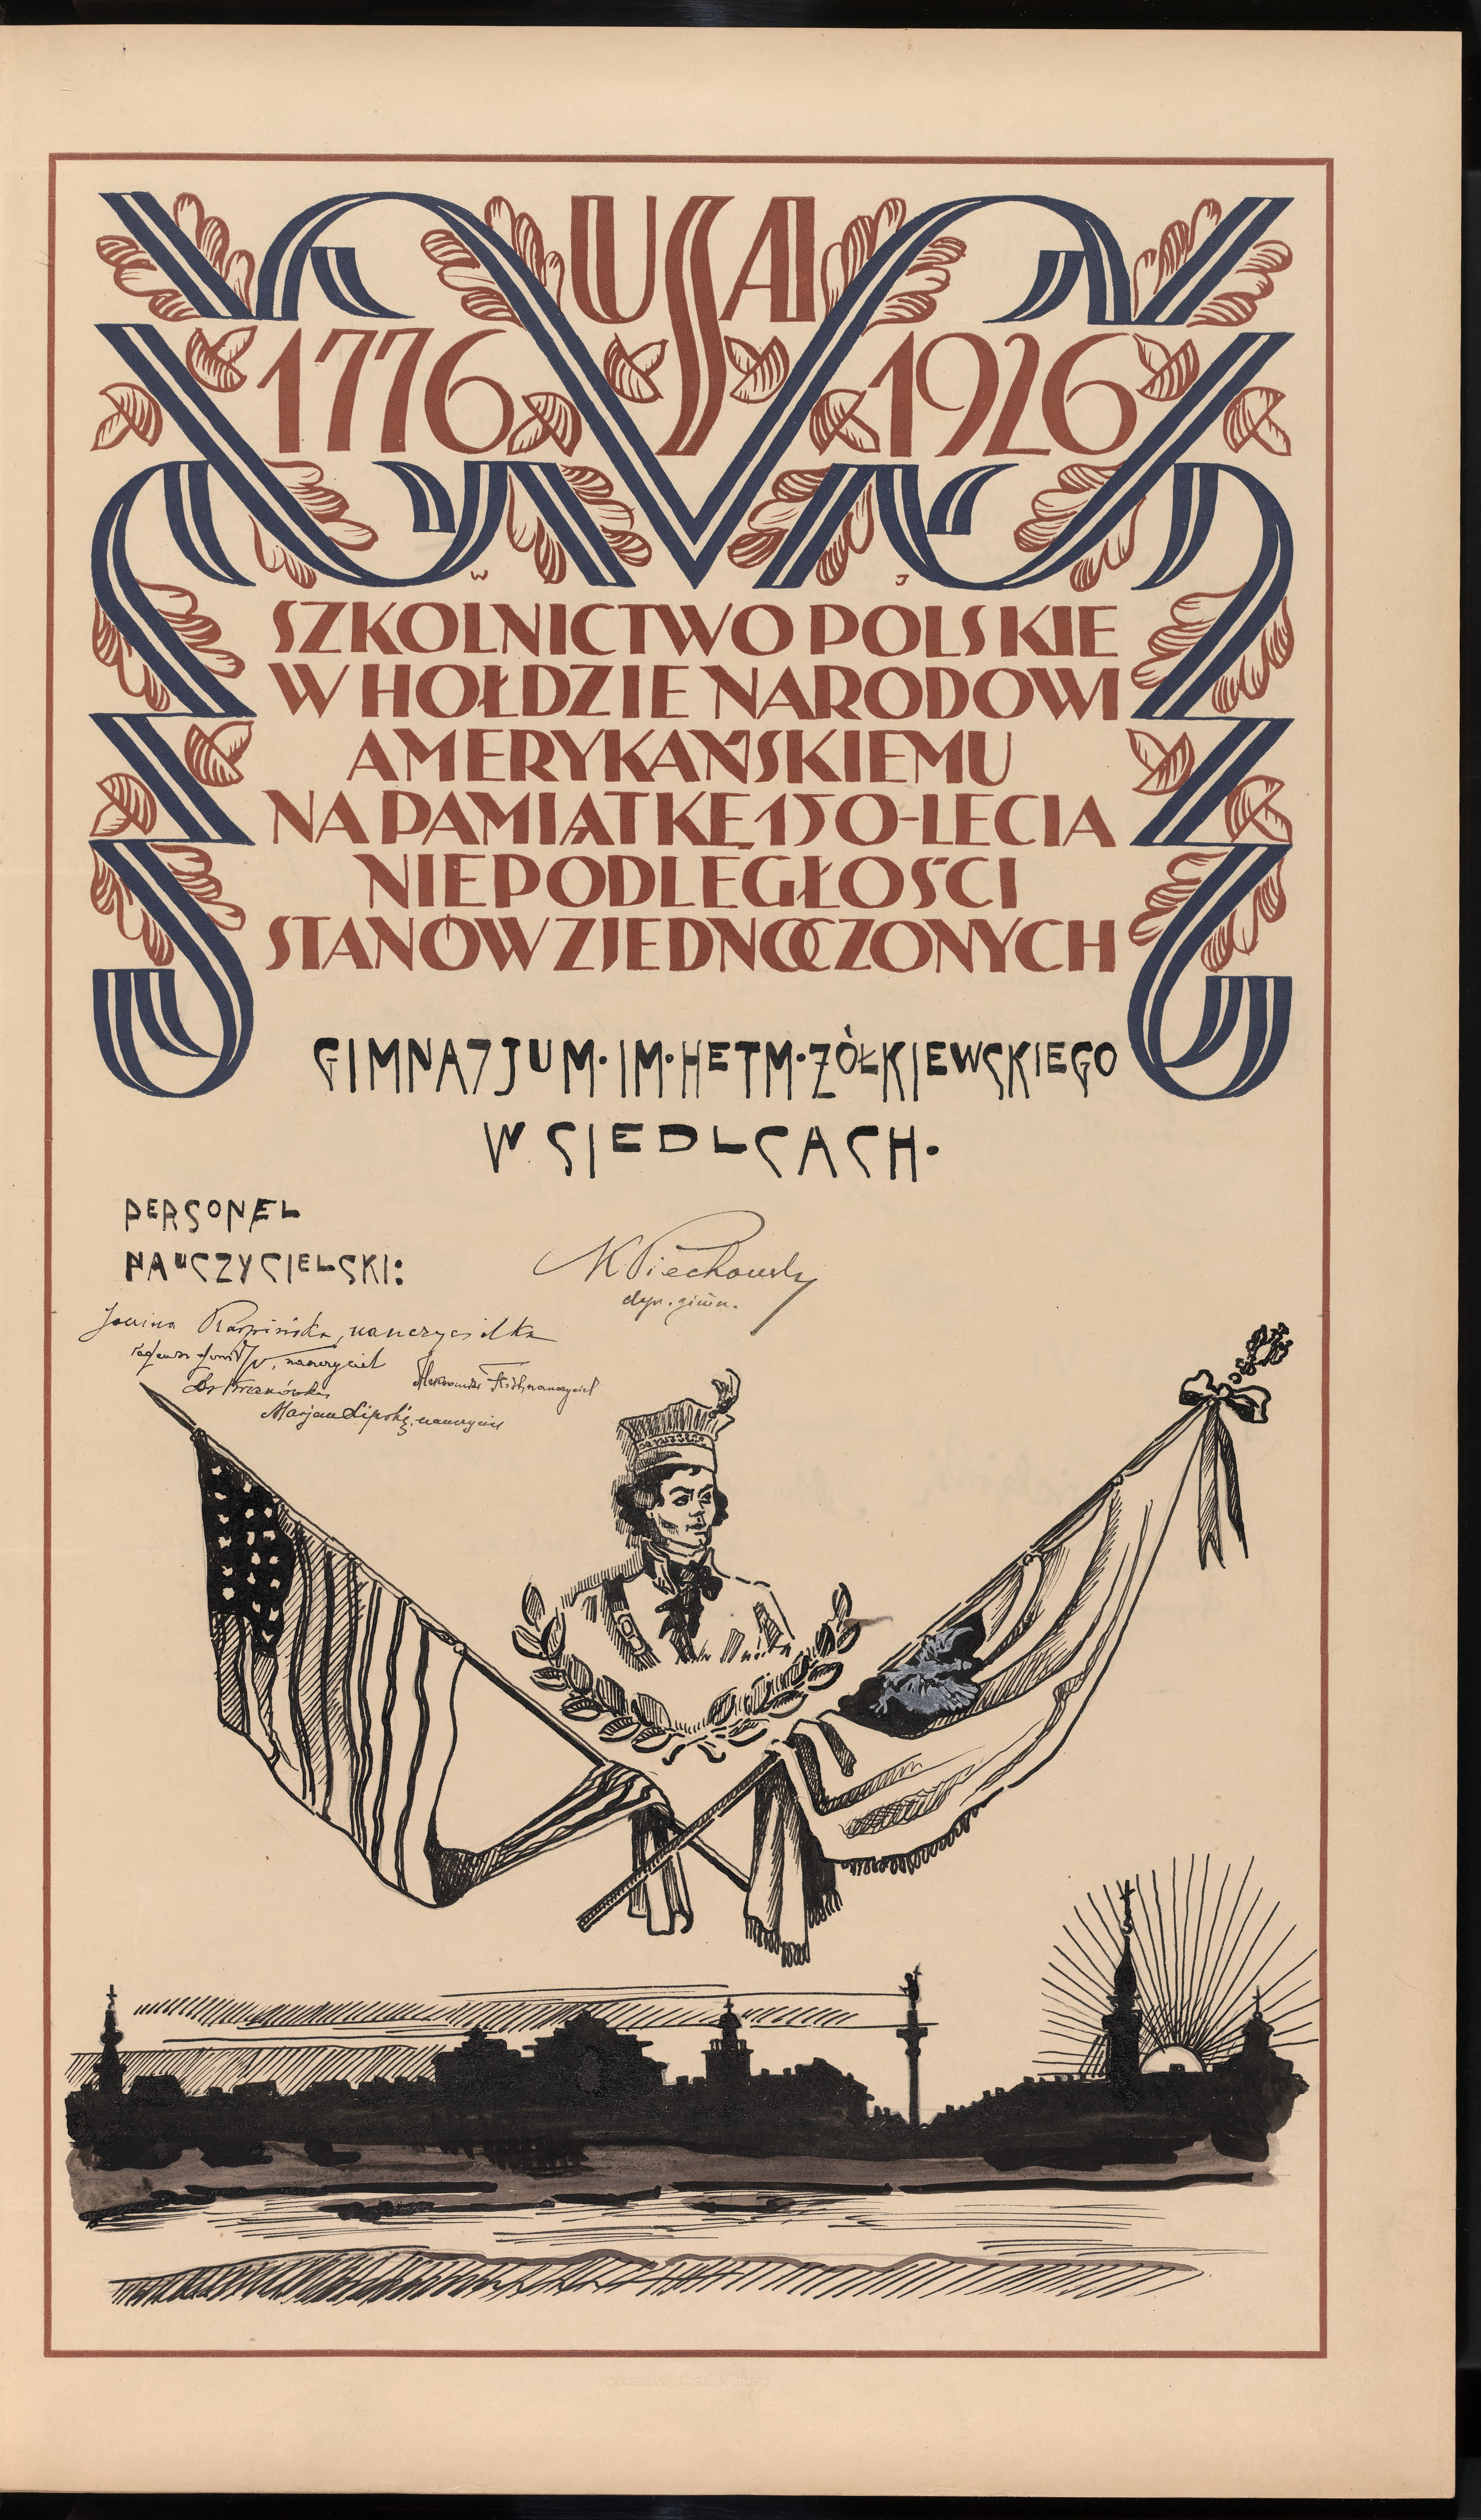 USA
1776 1926
W J
SZKOLNICTWO POLSKIE
W HOŁDZIE NARODOWI
AMERYKAŃSKIEMU
NA PAMIĄTKĘ 150-LECIA
NIEPODLEGŁOŚCI
STANÓW ZJEDNOCZONYCH
GIMNAZJUM·IM·HETM·ŻÓŁKIEWSKIEGO
W SIEDLCACH·
PERSONEL
NAUCZYCIELSKI:
Piechowski
dyr. gimn.
Janina Karpińska, nauczycielka
nauczyciel
nauczyciel
Marjan Lipski, nauczyciel